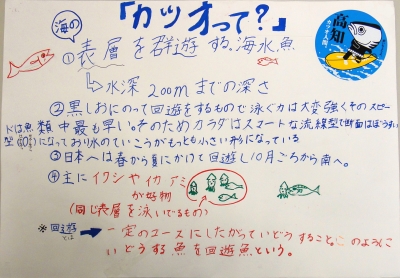 「カツオって?」
海の
①表層を群遊する海水魚
水深200mまでの深さ
②黒しおにのって回遊をするもので泳ぐカは大変強くそのスピー
ドは魚類中最も早い。そのためカラダはスマートな流線型で断面はぼうすい
型になっており水のていこうがもっとも小さい形になっている
③日本へは春から夏にかけて回遊し10月ごろから南へ。
④主にイワシやイカ アミ
が好物
(同じ表層を泳いでるもの)
※回遊とは
一定のコースにしたがっていどうすること。このように
いどうする魚を回遊魚という。
高知